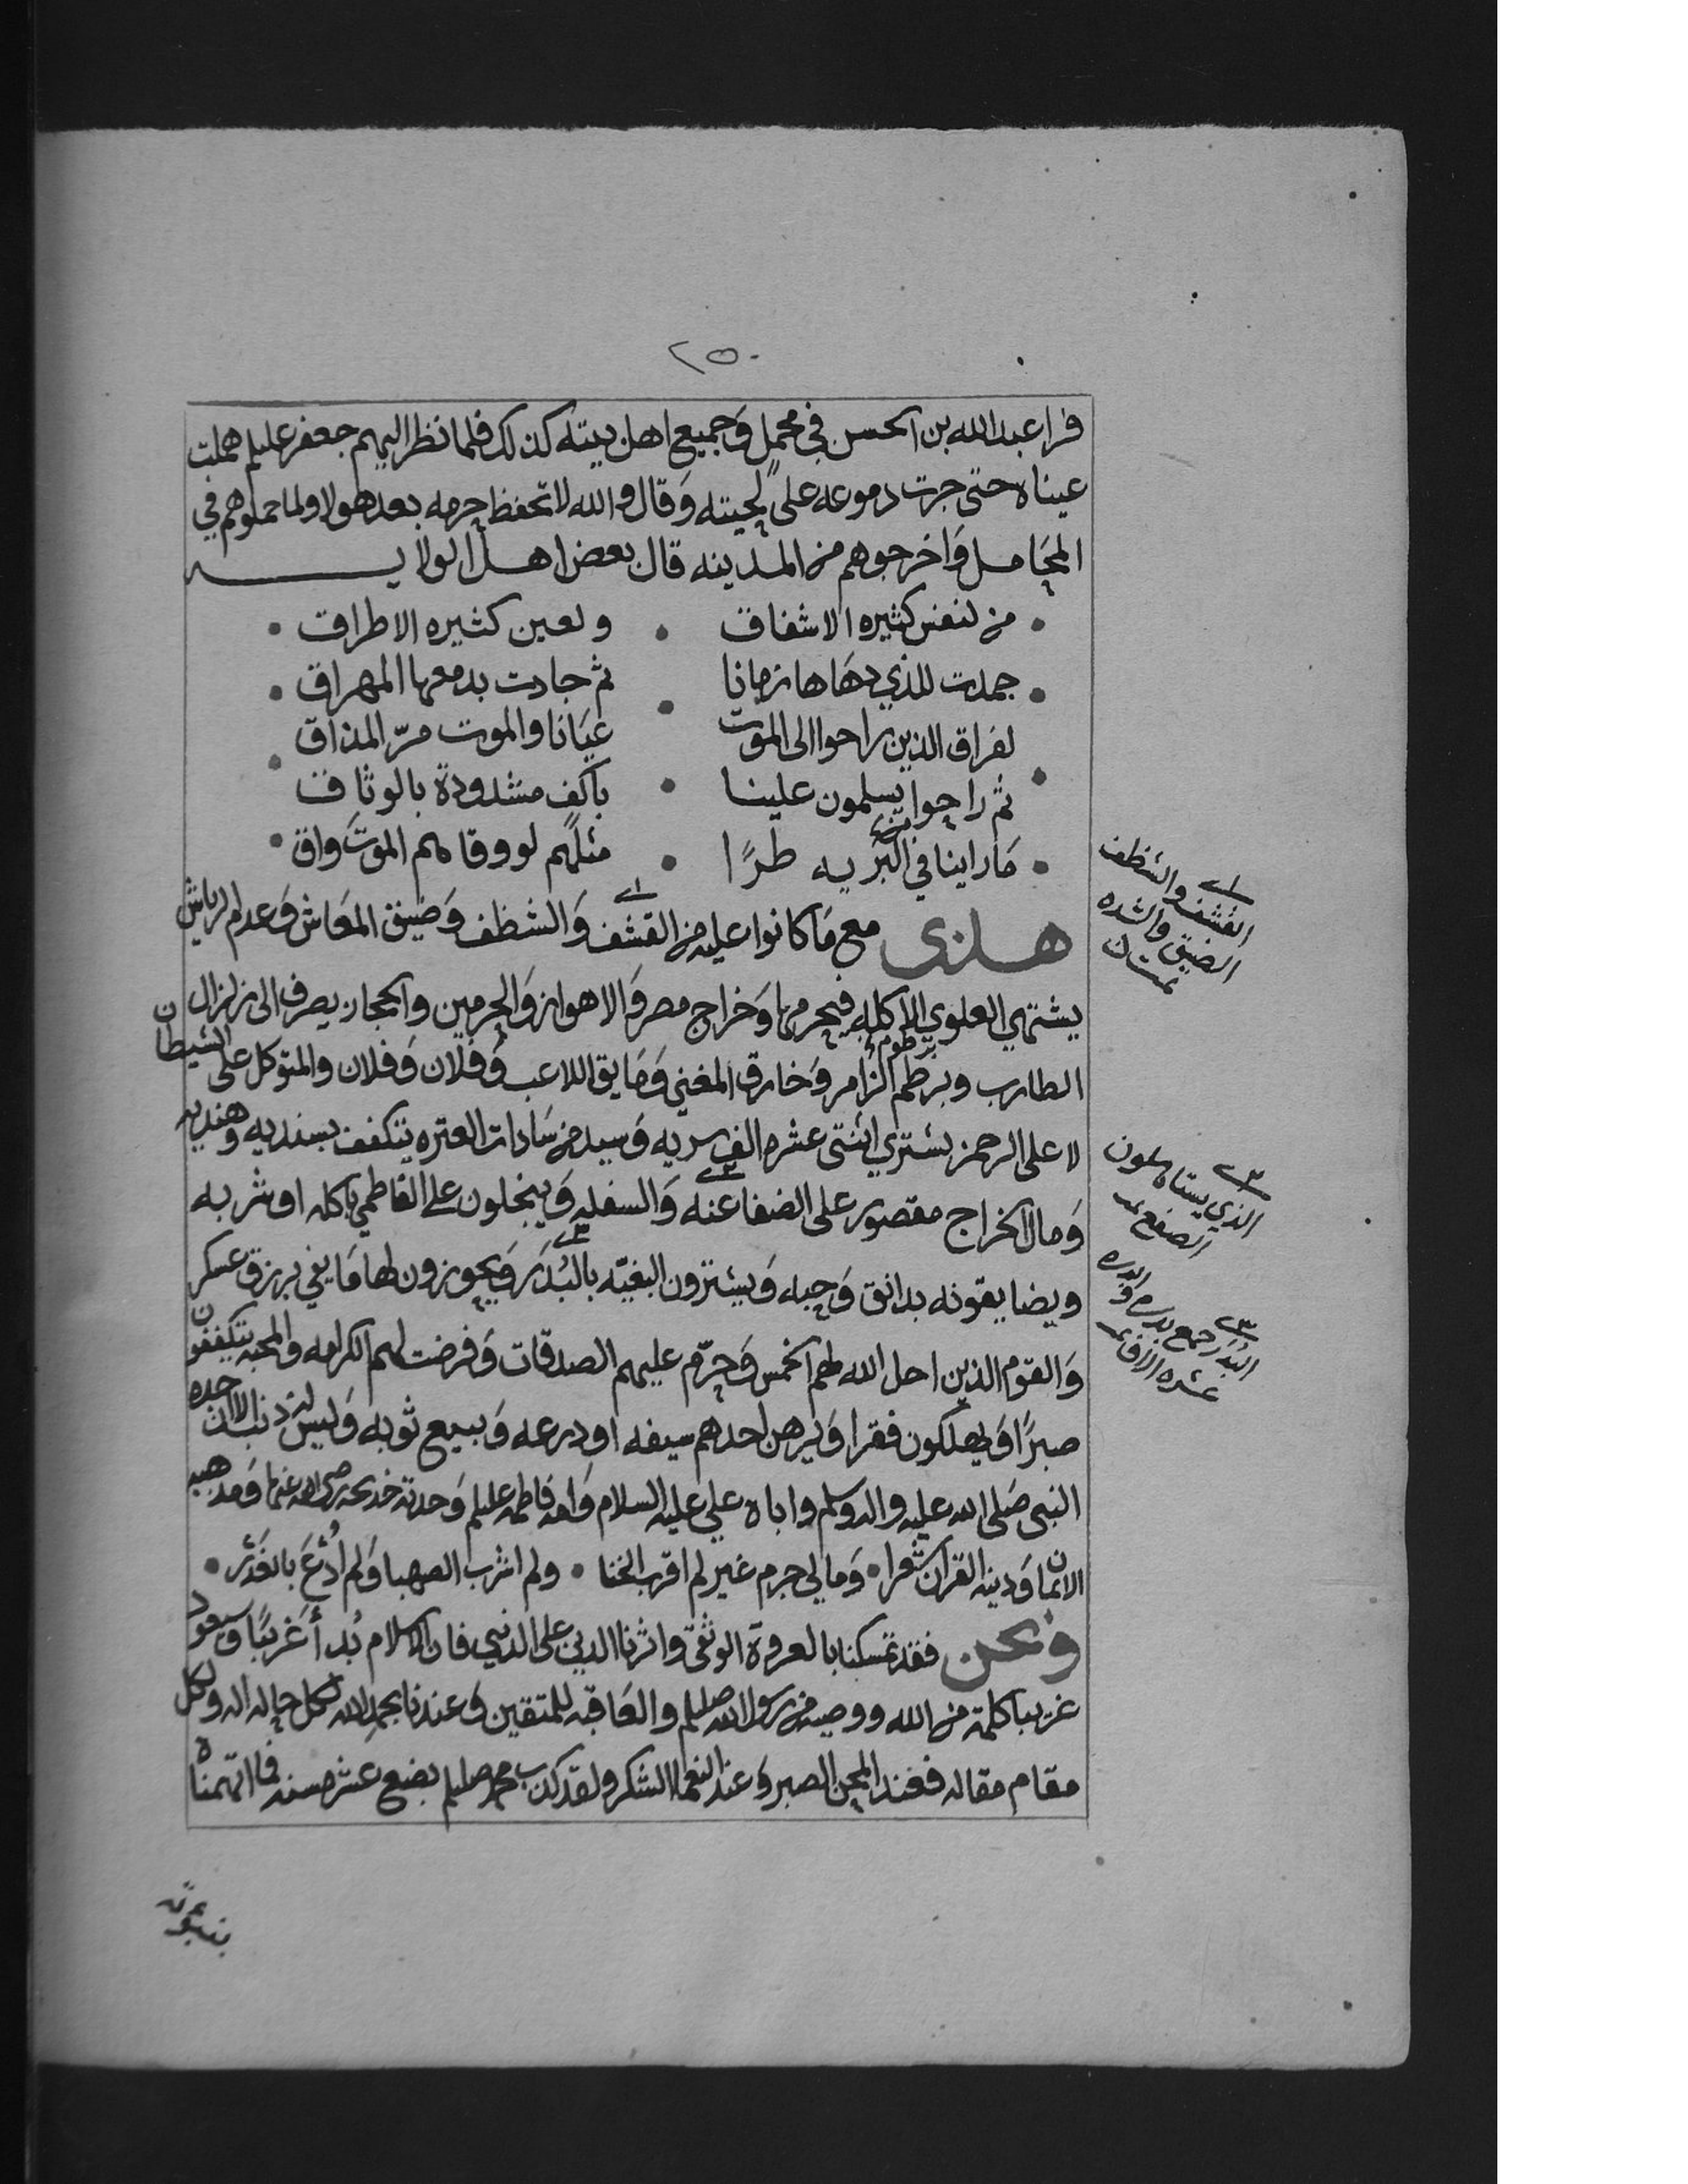 ٢٥٠
فرا عبد الله بن الحسن في محمل وَجميع اهل بيته كذلك فلما نظر اليهم جعفر عليلم هملت
عيناه حتى جرت دموعه على لحيته وَقال والله لا تحفظ حرمه بعد هولا ولما حملوهم في
المحَامل وَاخرجوهم من المدينه قال بعض اهل الولايه
من لنفس كثيره الاشفاق • ولعين كثيره الاطراق
جمدت للذي دهَاها زمانا • ثم جادت بدمعها المهراق
لفراق الذين راحوا الى الموت • عيَانا والموت مرّ المذاق
ثم راحوا يسلمون علينا • باكف مشدودة بالوثاق
مَا راينا في البَرّيه طرًا • مثلَهم لو وقاهم الموتَ واق
هذى مع مَا كانوا عليه من القشف وَالشظف وَضيق المعَاش وَعدام الرياش
يشتهي العلوي الاكله فيحرمها وَخراج مصر وَالاهواز وَالحرمين والحجاز يصرف الى زلزال
الطارب وبرطم الزامر وَمخارق المغني وَ اللاعب وَفلان وَفلان والمتوكل على الشيطان
برطوم
لا على الرحمن يشتري اثنتى عشره الف سريه وَسيد من سَادات العتره يتكفف بسنديه وهنديه
وَمال الخراج مقصور على الضفاعنه وَالسفله وَيبخلون على الفاطمي باكله او شربه
ويضايقونه بدانق وَحبه وَيشترون البغيّه بالبُدَر وَيجوزون لها مَا يفي برزق عسكر
وَالقوم الذين احل الله لهم الخمس وَحرّم عليهم الصدقات وَفرضت لهم الكرامه والمحبه يتكففون
صبرًا وَيهلكون فقرا وَيرهن احدهم سيفه او درعه وَيبيع ثوبه وَليس له ذنب الا ان جده
النبى صَلى الله عليه واله وسلم واباه علي عليه السلام وَامه فاطمه عليلم وَجدته خديجه رضي الله عنها وَمذهبه
الايمان وَدينه القران شعرا • وَمالي جرم غير لم اقرب الخنا • ولم اشرب الصهبا وَلم اُدْعَ بالغَدْر •
ونحن فقد تمسكنا بالعروة الوثقى واثرنا الدين على الدنيي فان الاسلام بُدأ غريبًا وَسيعود
غريبا كلمة من الله ووصيه من رسول الله صلىلم والعَاقبه للمتقين وَعندنا بحمد الله لكل حاله اله ولكل
مقام مقاله فعند المحن الصبر وَعند النعما الشكر ولقد كذب محمد صلىلم بضع عشره سنه فما اتهمناه
القشف والشظف
الضيق والشده
الذي يستاهلون
الصفع تمت
البُدَر جمع بدره والبدره
عشره الاف تمت